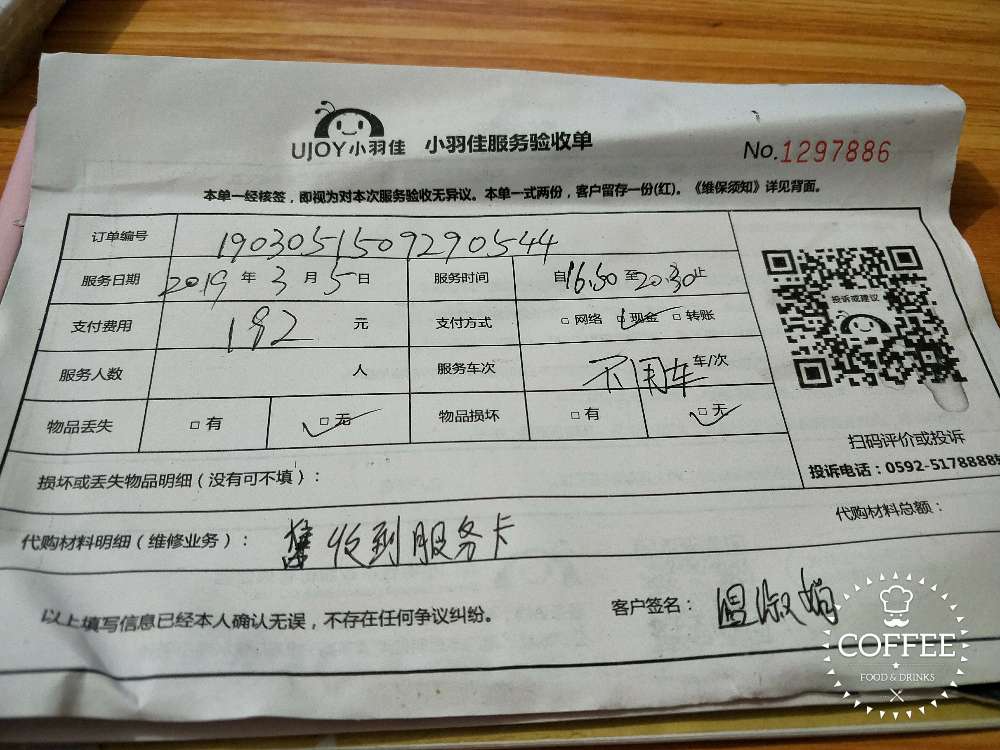 UJOY小羽佳 小羽佳服务验收单 No.1297886
本单一经核签，即视为对本次服务验收无异议。本单一式两份，客户留存一份(红)。《维保须知》详见背面。
订单编号 1903051509290544
服务日期 2019 年 3 月 5 日 服务时间 自16:30 至20:30止
投诉或建议
支付费用 192 元 支付方式 □ 网络 □ 现金 □ 转账
服务人数 人 服务车次 不用车 车/次
物品丢失 □ 有 □ 无 物品损坏 □ 有 □ 无
扫码评价或投诉
投诉电话：0592-5178888
损坏或丢失物品明细（没有可不填）：
代购材料总额：
代购材料明细（维修业务）： 收到服务卡
以上填写信息已经本人确认无误，不存在任何争议纠纷。 客户签名： 温淑娟
COFFEE
FOOD & DRINKS